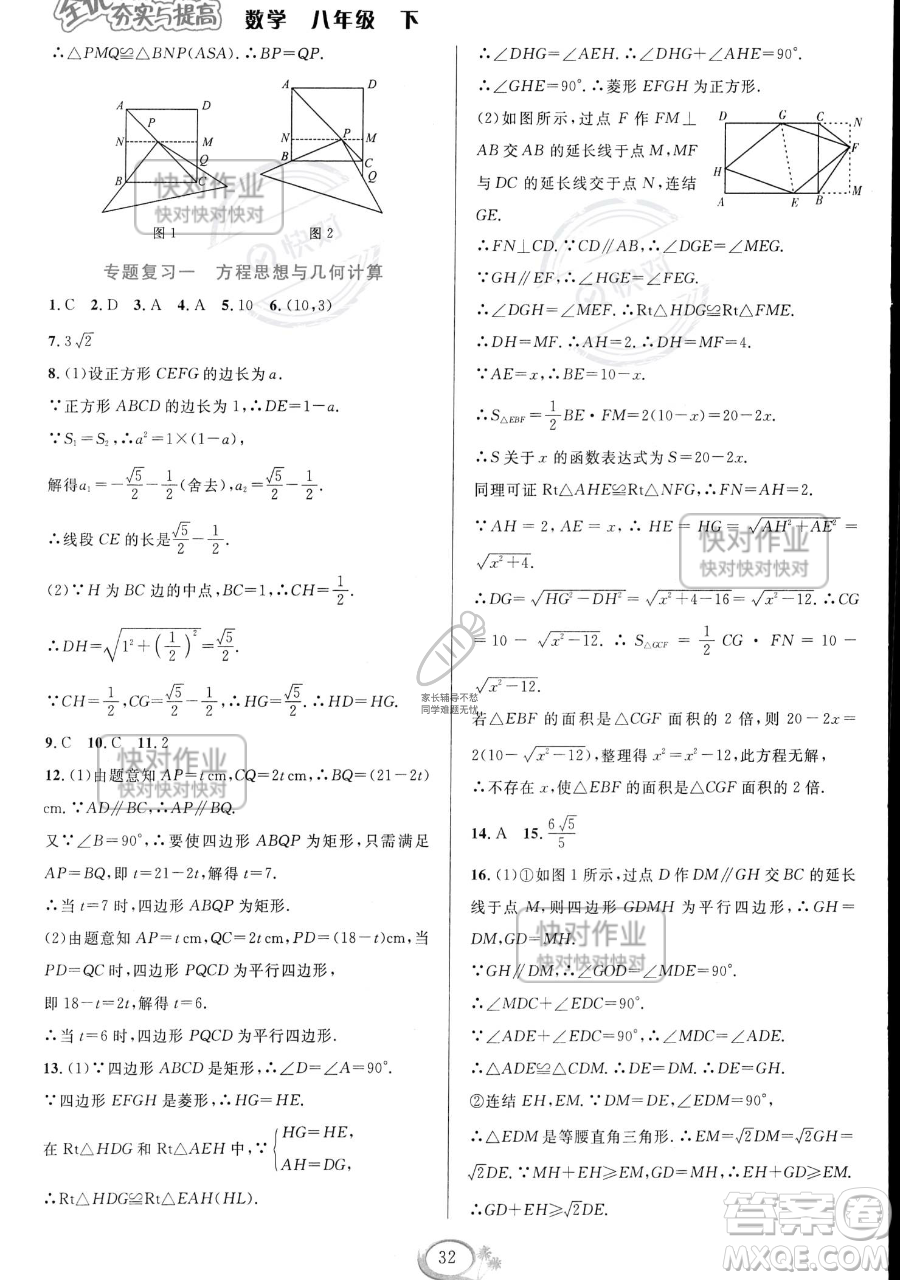 全优
夯实与提高 数学 八年级 下
∴△PMQ≌△BNP(ASA).∴BP=QP.
A D
P
N M
Q
B C
图1
A D
N P M
B C
Q
图2
专题复习一 方程思想与几何计算
1.C 2.D 3.A 4.A 5.10 6.(10,3)
7.3√2
8.(1)设正方形 CEFG 的边长为a.
∵正方形 ABCD 的边长为1,∴DE=1-a.
∵S₁=S₂,∴a²=1×(1-a),
解得a₁=-√5/2-1/2(舍去),a₂=√5/2-1/2.
∴线段 CE 的长是√5/2-1/2.
(2)∵H 为 BC 边的中点,BC=1,∴CH=1/2.
∴DH=√(1²+(1/2)²)=√5/2.
∵CH=1/2,CG=√5/2-1/2,∴HG=√5/2.∴HD=HG.
9.C 10.C 11.2
12.(1)由题意知 AP=t cm,CQ=2t cm,∴BQ=(21-2t)
cm.∵AD∥BC,∴AP∥BQ.
又∵∠B=90°,∴要使四边形 ABQP 为矩形,只需满足
AP=BQ,即 t=21-2t,解得 t=7.
∴当 t=7 时,四边形 ABQP 为矩形.
(2)由题意知 AP=t cm,QC=2t cm,PD=(18-t)cm,当
PD=QC 时,四边形 PQCD 为平行四边形,
即 18-t=2t,解得 t=6.
∴当 t=6 时,四边形 PQCD 为平行四边形.
13.(1)∵四边形 ABCD 是矩形,∴∠D=∠A=90°.
∵四边形 EFGH 是菱形,∴HG=HE.
在 Rt△HDG 和 Rt△AEH 中,∵{HG=HE,
AH=DG,
∴Rt△HDG≌Rt△EAH(HL).
∴∠DHG=∠AEH.∴∠DHG+∠AHE=90°.
∴∠GHE=90°.∴菱形 EFGH 为正方形.
(2)如图所示,过点 F 作 FM⊥
AB 交 AB 的延长线于点 M,MF
与 DC 的延长线交于点 N,连结
GE.
D G C N
F
H
A E B M
∴FN⊥CD.∵CD∥AB,∴∠DGE=∠MEG.
∵GH∥EF,∴∠HGE=∠FEG.
∴∠DGH=∠MEF.∴Rt△HDG≌Rt△FME.
∴DH=MF.∴AH=2,∴DH=MF=4.
∵AE=x,∴BE=10-x.
∴S△EBF=1/2BE·FM=2(10-x)=20-2x.
∴S 关于 x 的函数表达式为 S=20-2x.
同理可证 Rt△AHE≌Rt△NFG,∴FN=AH=2.
∵AH=2,AE=x,∴HE=HG=√(AH²+AE²)=
√(x²+4).
∴DG=√(HG²-DH²)=√(x²+4-16)=√(x²-12).∴CG
=10-√(x²-12).∴S△GCF=1/2CG·FN=10-
√(x²-12).
若△EBF 的面积是△CGF 面积的 2 倍,则 20-2x=
2(10-√(x²-12)),整理得 x²=x²-12,此方程无解,
∴不存在 x,使△EBF 的面积是△CGF 面积的 2 倍.
14.A 15.6√5/5
16.(1)①如图1所示,过点 D 作 DM∥GH 交 BC 的延长
线于点 M,则四边形 GDMH 为平行四边形,∴GH=
DM,GD=MH.
∵GH∥DM,∴∠GOD=∠MDE=90°.
∴∠MDC+∠EDC=90°.
∵∠ADE+∠EDC=90°,∴∠MDC=∠ADE.
∴△ADE≌△CDM.∴DE=DM.∴DE=GH.
②连结 EH,EM.∵DE=DM,∠EDM=90°,
∴△EDM 是等腰直角三角形.∴EM=√2DM=
√2DE.∵MH+EH≥EM,GD=MH,
∴GD+EH≥EM.
∴GD+EH≥√2DE.
32
快对作业
快对快对快对
快对作业
快对快对快对
快对作业
快对快对快对
快对作业
快对快对快对
快对
家长辅导不愁
同学难题无忧
答案圈
MXQE.COM